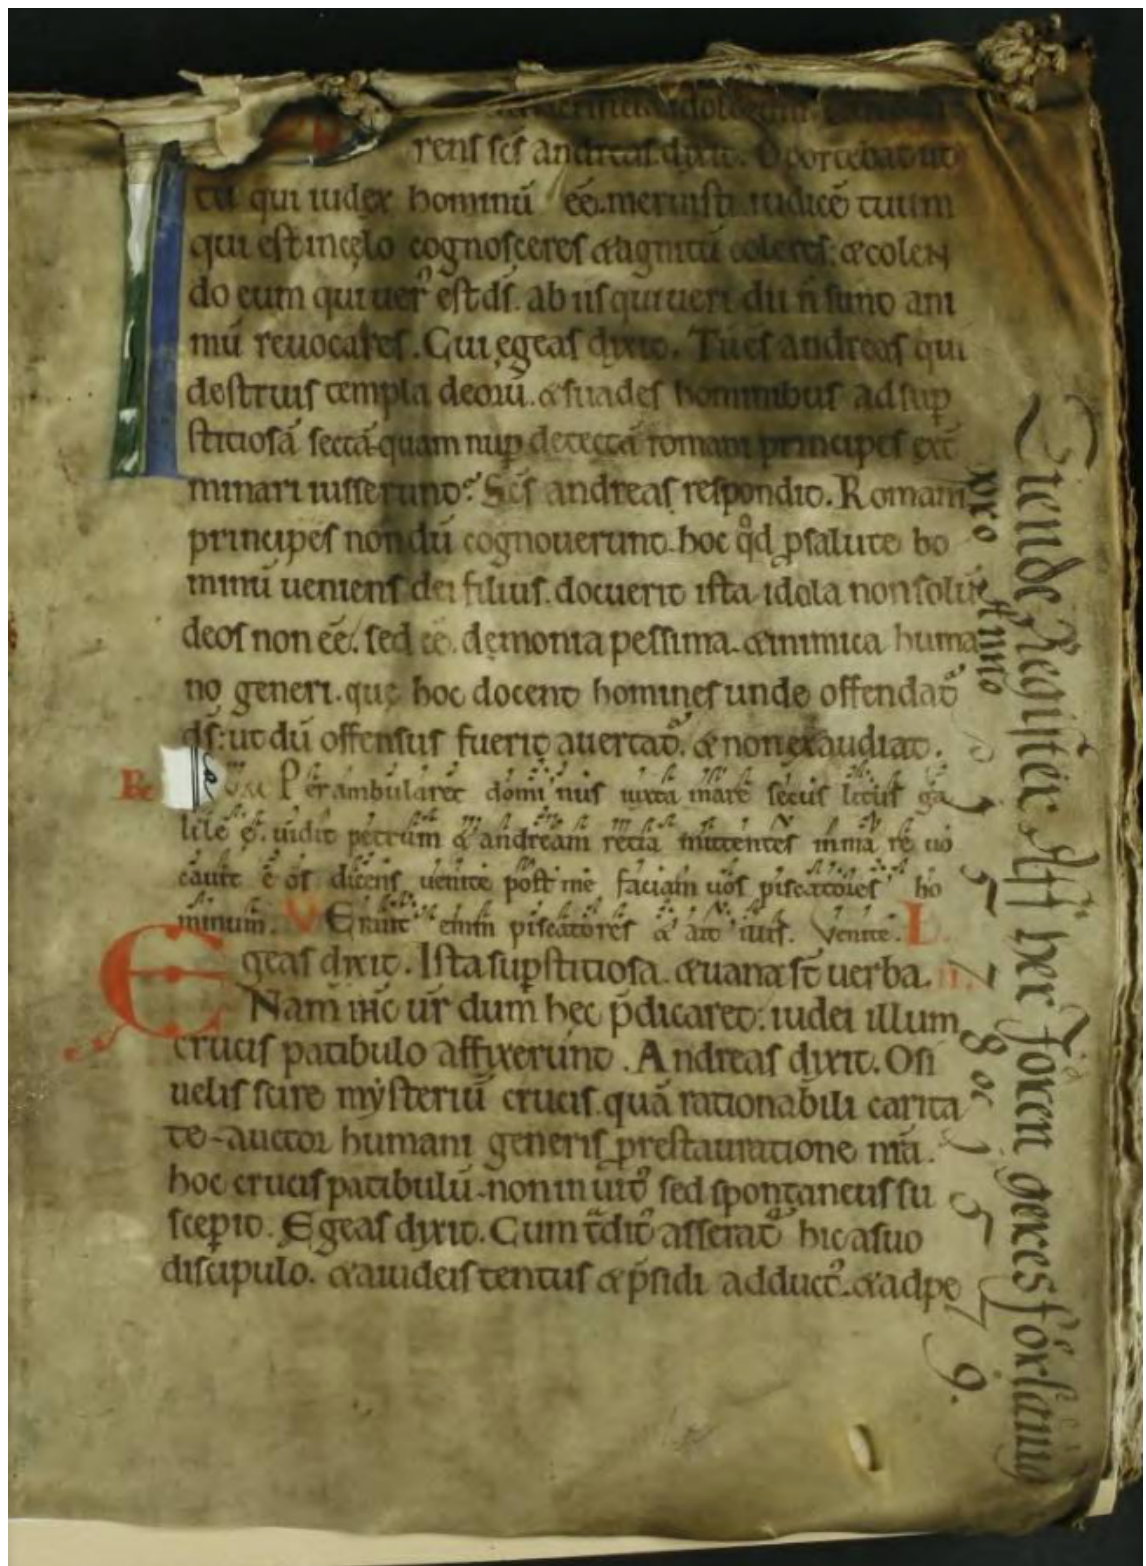 rens scs andreas dixit. Oportebat ut
tu qui iudex hominū eē. meruisti iudicē tuum
qui est incęlo cognosceres & agnitū coleres: & colen
do eum qui uer᷒ est ds̄. ab iis qui ueri dii n̄ sunt ani
mū reuocares. Cui egeas dixit. Tu es andreas qui
destruis templa deorū. & suades hominibus ad sup
stitiosā sectā quam nup detectā romani principes ext̄
minari iusserunt. Scs andreas respondit. Romani
principes nondū cognouerunt. hoc qd̊ ꝓ salute ho
minū ueniens dei filius. docuerit ista idola non solū
deos non eē. sed eē. dęmonia pessima. & inimica huma
no generi. quę hoc docent homines unde offendat᷒
ds̄: ut dū offensus fuerit auertat᷒. & non exaudiat.
R Perambularet dominus iuxta mare secus litus ga
lileę. uidit petrum & andream retia mittentes in ma re uo
cauit e os dicens uenite post me faciam uos piscatores ho
minum. V Erant enim piscatores & ait illis. Venite. L.
Egeas dixit. Ista supstitiosa. & uana st̄ uerba. ii.
Nam ih̄c ur̄ dum hęc p̄dicaret: iudei illum
crucis patibulo affixerunt. Andreas dixit. O si
uelis scire mysteriū crucis. quā rationabili carita
te auctor humani generis ꝓ restauratione nr̄a.
hoc crucis patibulū. non inuit᷒ sed spontaneus su
scepit. Egeas dixit. Cum t̄dit᷒ asserat᷒ hic a suo
discipulo. & a iudeis tentus & p̄sidi adduct᷒. & ad pe
Tiende Register Aff her Joren geres forlaning
pro Anno
1578 oc 1579.